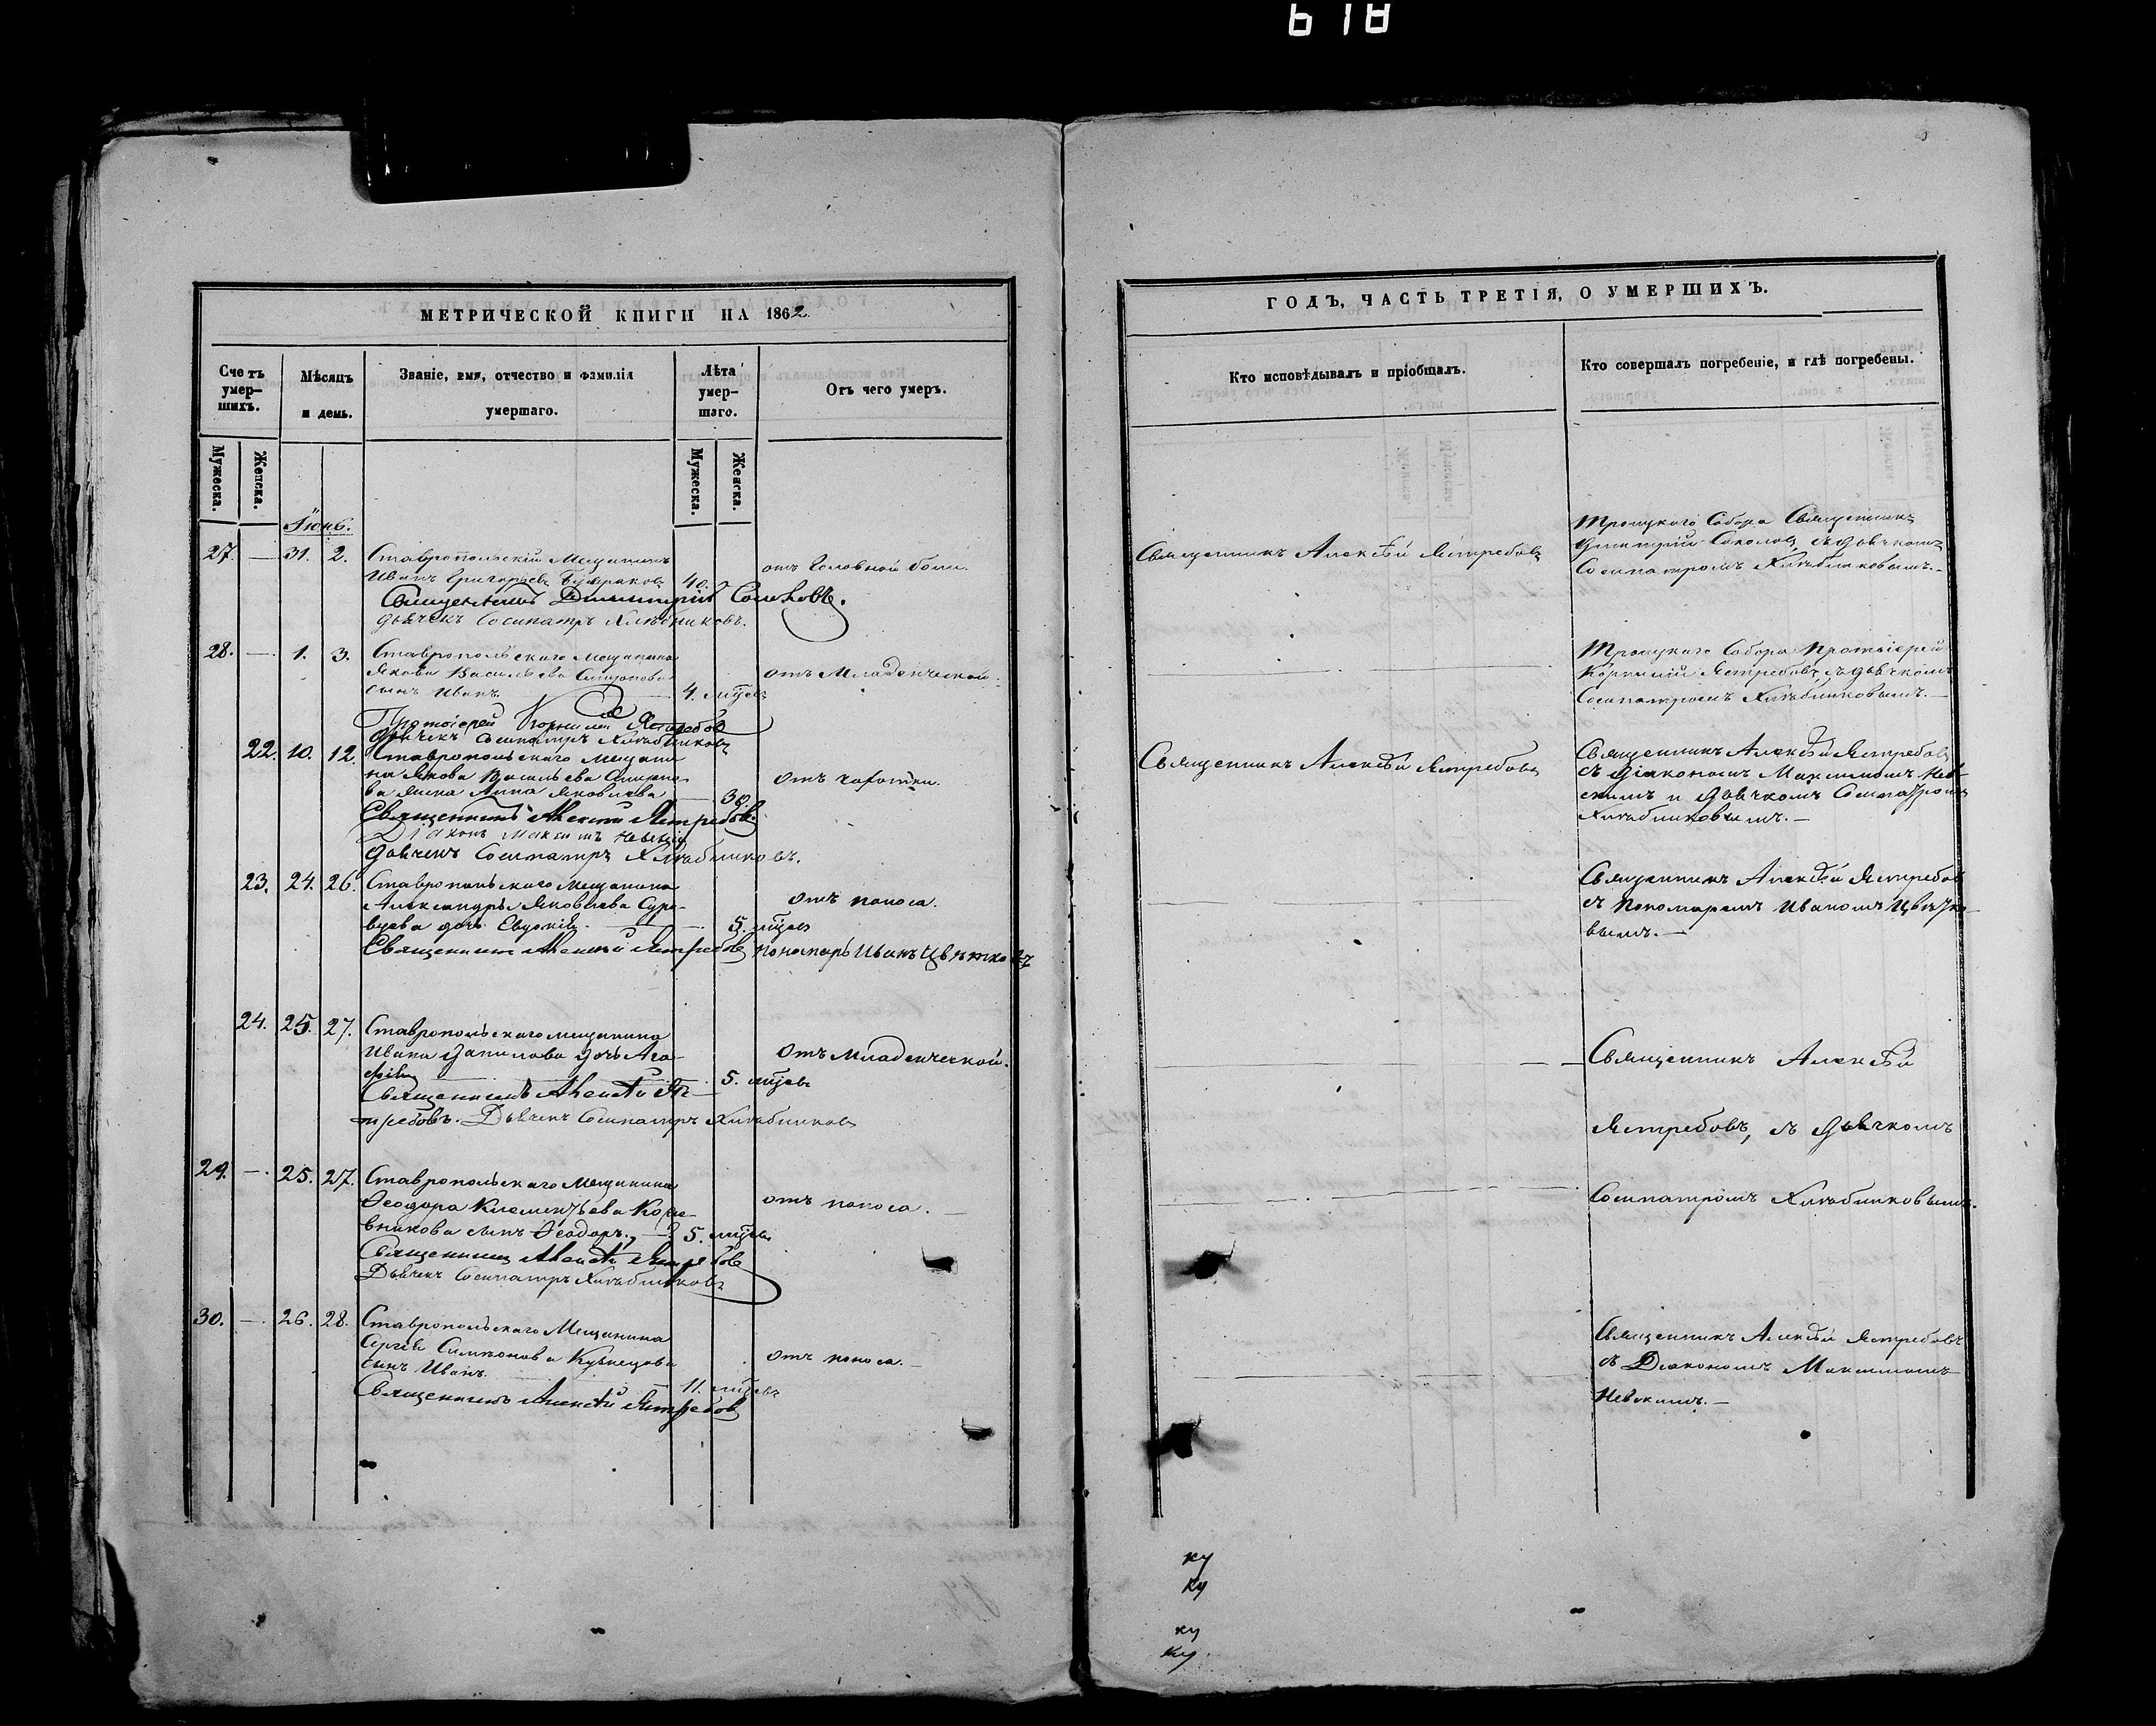 618
МЕТРИЧЕСКОЙ КНИГИ НА 1862.
Счетъ умер-шихъ.
Мѣсяцъ и день.
Званіе, имя, отчество и фамилія умершаго.
Лѣта умер-шаго.
Отъ чего умеръ.
Мужеска.
Женска.
Мужеска.
Женска.
Іюнь.
27. — 31. 2. Ставропольскій Мещанинъ
Иванъ Григорьевъ 40. отъ Головной боли.
Священникъ Димитрій Соколовъ.
дьячекъ Сосипатръ Хлѣбниковъ.
28. — 1. 3. Ставропольскаго мещанина
Якова Васильева Смирнова отъ Младенческой.
сынъ Иванъ. 4. мѣсяц
Протоіерей Корнилій Ястребовъ
дьячекъ Сосипатръ Хлѣбниковъ
22. 10. 12. Ставропольскаго мещани
на Якова Васильева Смирно-
ва жена Анна Яковлева 38. отъ чахотки.
Священникъ Алексѣй Ястребовъ.
Діаконъ Максимъ Невскій
дьячекъ Сосипатръ Хлѣбниковъ.
23. 24. 26. Ставропольскаго мещанина
Александра Яковлева Суро-
вцева дочь Евдокія. 5. мѣсяц отъ поноса.
Священникъ Алексѣй Ястребовъ пономарь Иванъ Цвѣтковъ
24. 25. 27. Ставропольскаго мещанина
Ивана Данилова дочь Ага-
фія 5. мѣсяц отъ младенческой.
Священникъ Алексѣй Яс-
требовъ. Дьячекъ Сосипатръ Хлѣбниковъ
29. — 25. 27. Ставропольскаго Мещанина
Ѳеодора Климентьева Коже-
вникова сынъ Ѳеодоръ. 5. мѣсяц отъ поноса. —
Священникъ Алексѣй Ястребовъ
Дьячекъ Сосипатръ Хлѣбниковъ
30. — 26. 28. Ставропольскаго Мещанина
Сергѣя Симеонова Кузнецова
сынъ Иванъ. 11. мѣсяц отъ поноса. —
Священникъ Алексѣй Ястребовъ
ГОДЪ, ЧАСТЬ ТРЕТІЯ, О УМЕРШИХЪ.
Кто исповѣдывалъ и пріобщалъ.
Кто совершалъ погребеніе, и гдѣ погребены.
Священникъ Алексѣй Ястребовъ
Троицкаго Собора Священникъ
Димитрій Соколовъ съ дьячкомъ
Сосипатромъ Хлѣбниковымъ. —
Троицкаго Собора Протоіерей
Корнилій Ястребовъ, съ дьячкомъ
Сосипатромъ Хлѣбниковымъ. —
Священникъ Алексѣй Ястребовъ
Священникъ Алексѣй Ястребовъ
съ Діакономъ Максимомъ Нев-
скимъ и дьячкомъ Сосипатромъ
Хлѣбниковымъ. —
Священникъ Алексѣй Ястребовъ
съ пономаремъ Иваномъ Цвѣтко-
вымъ. —
Священникъ Алексѣй
Ястребовъ, съ дьячкомъ
Сосипатромъ Хлѣбниковымъ.
Священникъ Алексѣй Ястребовъ
съ Діакономъ Максимомъ
Невскимъ. —
ку
ку
ку
ку